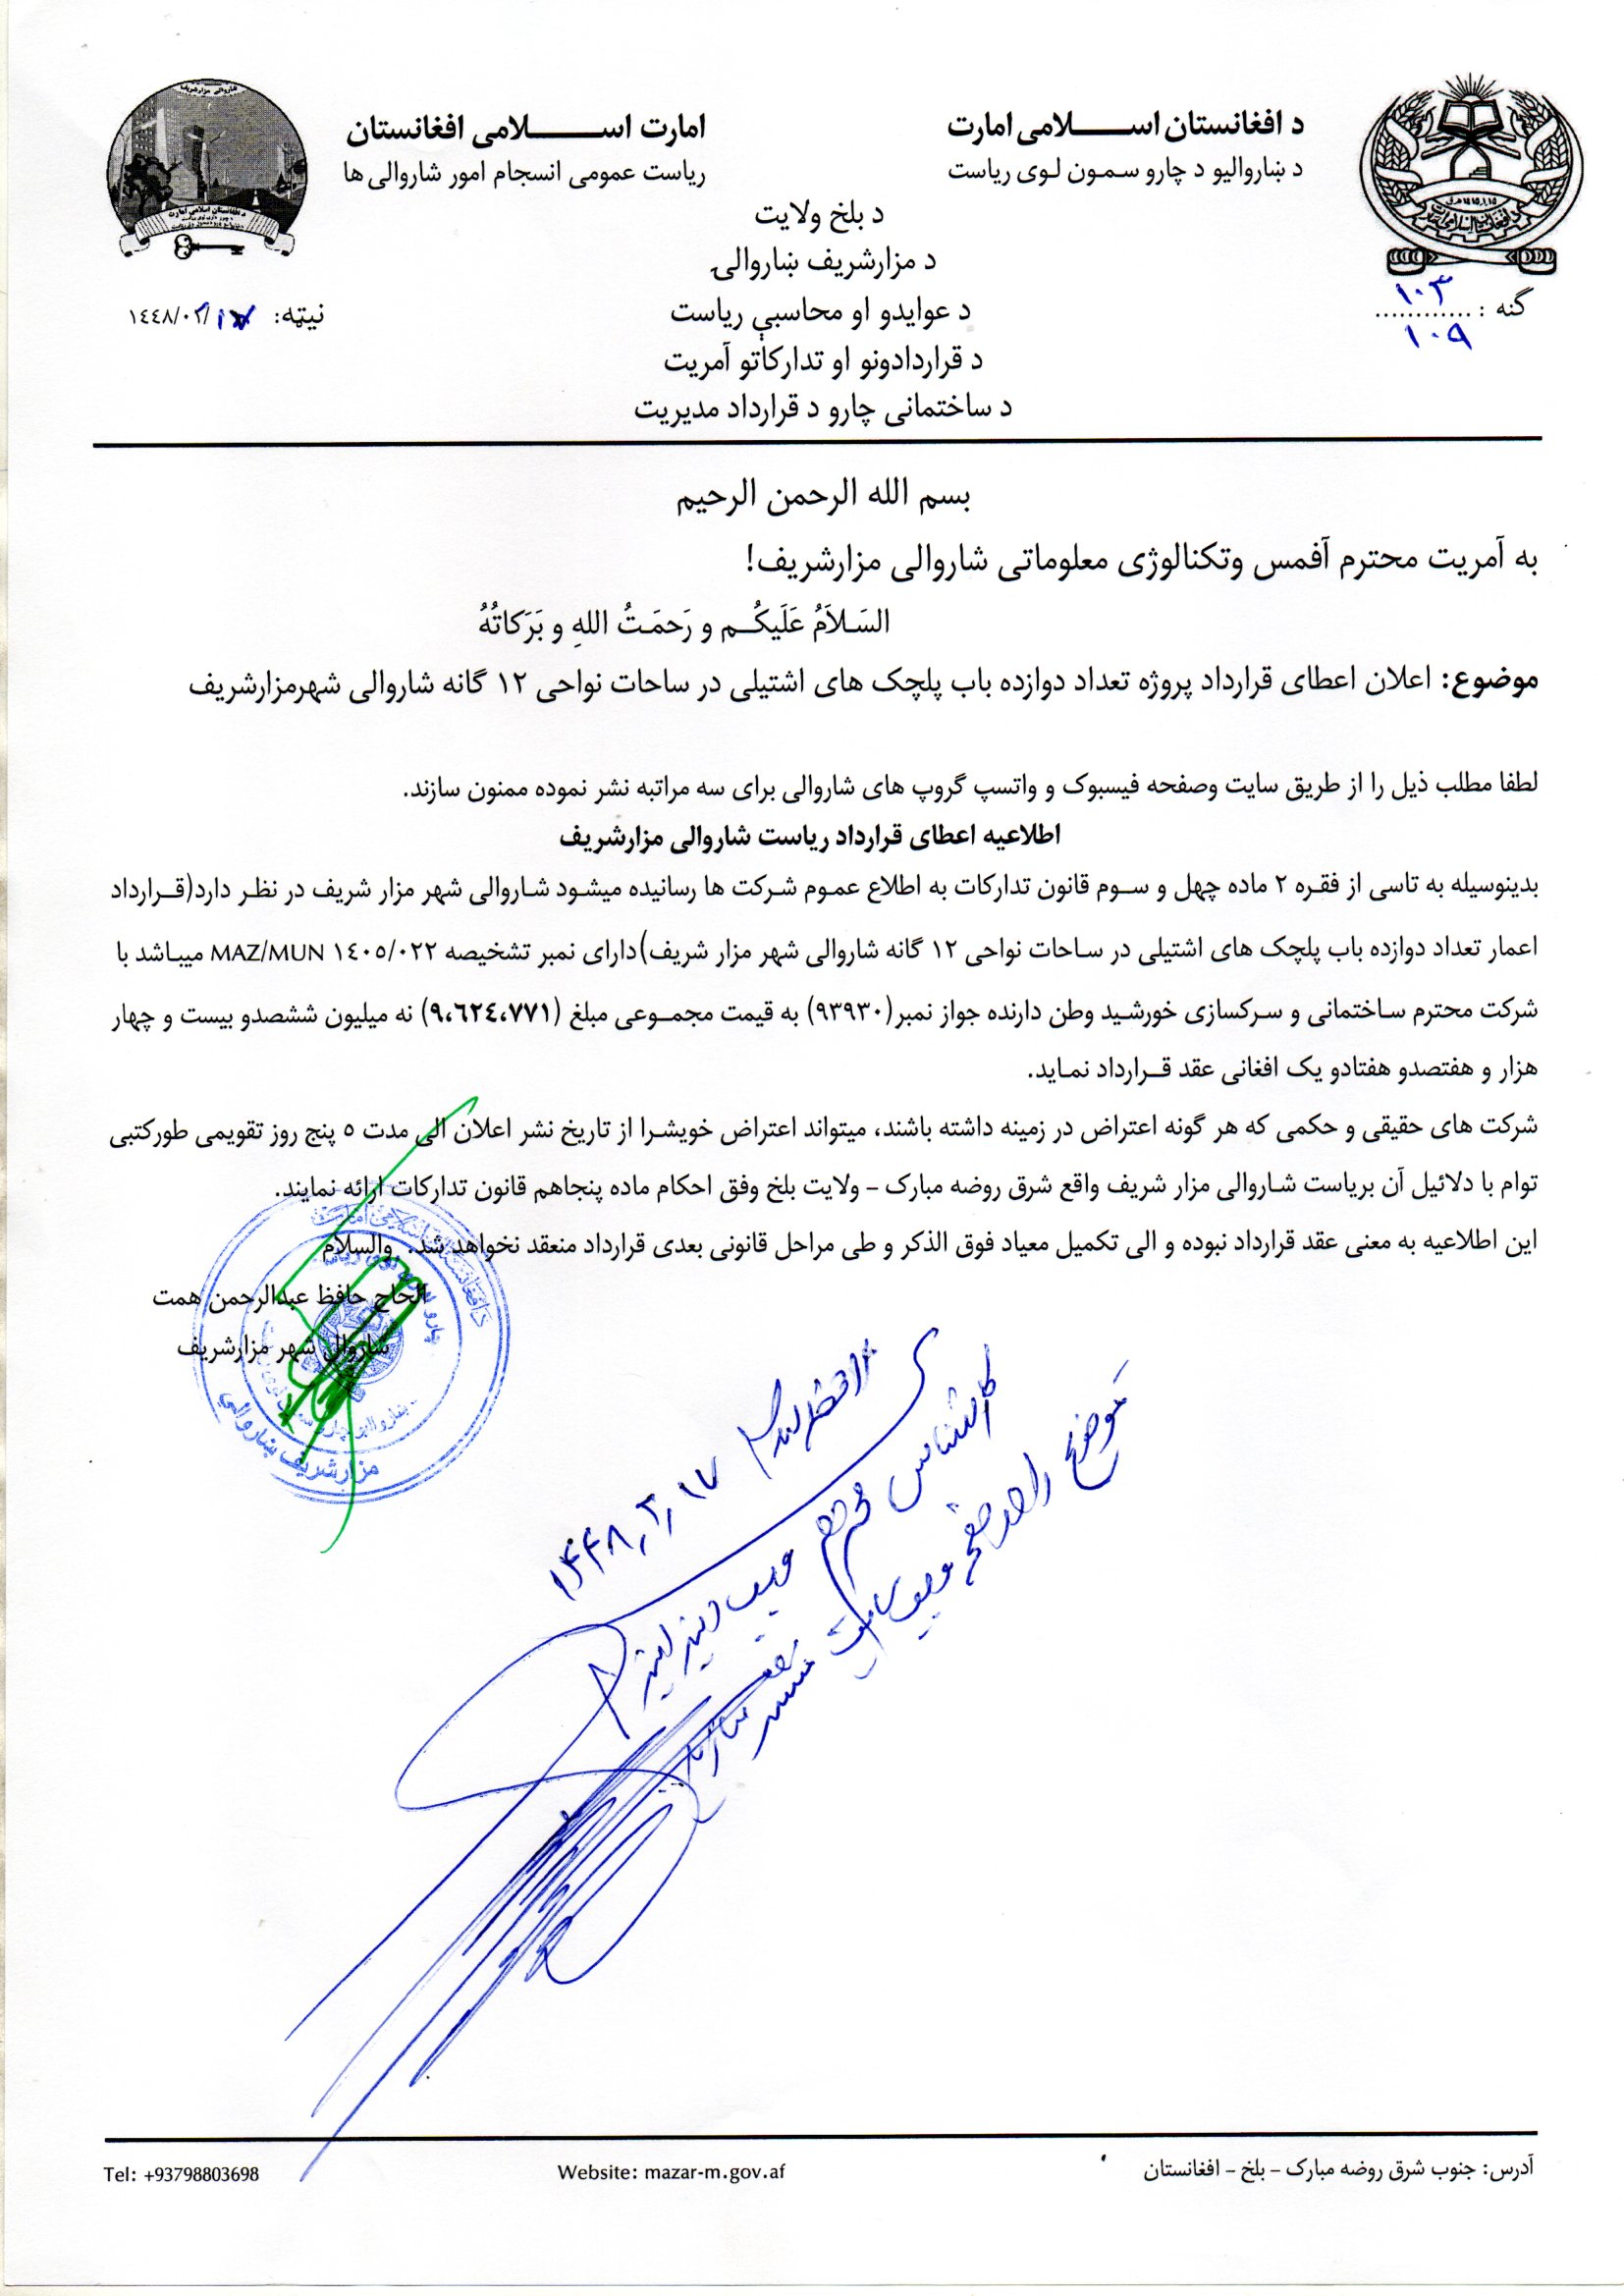 د افغانستان اســـــــلامی امارت
د ښاروالیو د چارو سمون لوی ریاست
امارت اســـــــلامی افغانستان
ریاست عمومی انسجام امور شاروالی ها
د بلخ ولایت
د مزارشریف ښاروالۍ
د عوایدو او محاسبې ریاست
د قراردادونو او تدارکاتو آمریت
د ساختمانی چارو د قرارداد مدیریت
گنه : ............
۱۰۳
۱۰۹
نیټه: ١٤٤٨/٠٢/
بسم الله الرحمن الرحیم
به آمریت محترم آفمس وتکنالوژی معلوماتی شاروالی مزارشریف!
السَـلاَمُ عَلَیکُــم و رَحمَـتُ اللهِ و بَرَکاتُهُ
موضوع: اعلان اعطای قرارداد پروژه تعداد دوازده باب پلچک های اشتیلی در ساحات نواحی ١٢ گانه شاروالی شهرمزارشریف
لطفا مطلب ذیل را از طریق سایت وصفحه فیسبوک و واتسپ گروپ های شاروالی برای سه مراتبه نشر نموده ممنون سازند.
اطلاعیه اعطای قرارداد ریاست شاروالی مزارشریف
بدینوسیله به تاسی از فقره ٢ ماده چهل و سـوم قانون تدارکات به اطلاع عمـوم شـرکت ها رسانیده میشـود شـاروالی شهر مزار شریف در نظـر دارد(قــرارداد
اعمار تعداد دوازده باب پلچک های اشتیلی در سـاحات نواحی ١٢ گانه شاروالی شهر مزار شریف)دارای نمبر تشخیصه MAZ/MUN ١٤٠٥/٠٢٢ میبـاشد با
شرکت محترم سـاختمانی و سـرکسازی خورشـید وطن دارنده جواز نمبر(٩٣٩٣٠) به قیمت مجمــوعی مبلغ (٩،٦٢٤،٧٧١) نه میلیون ششصدو بیست و چهار
هزار و هفتصدو هفتادو یک افغانی عقد قــرارداد نمـاید.
شرکت های حقیقی و حکمی که هر گونه اعتراض در زمینه داشته باشند، میتواند اعتراض خویشـرا از تاریخ نشر اعلان الی مدت ٥ پنج روز تقویمی طورکتبی
توام با دلائیل آن بریاست شـاروالی مزار شریف واقع شرق روضه مبارک – ولایت بلخ وفق احکام ماده پنجاهم قانون تدارکات ارائه نمایند.
این اطلاعیه به معنی عقد قرارداد نبوده و الی تکمیل معیاد فوق الذکر و طی مراحل قانونی بعدی قرارداد منعقد نخواهد شد. والسلام
الحاج حافظ عبدالرحمن همت
شاروال شهر مزارشریف
مزارشریف ښاروالي
کارشناس محترم
موضوع را
۱۴۴۸٫۲٫۱۷
آدرس: جنوب شرق روضه مبارک – بلخ – افغانستان
Website: mazar-m.gov.af
Tel: +93798803698